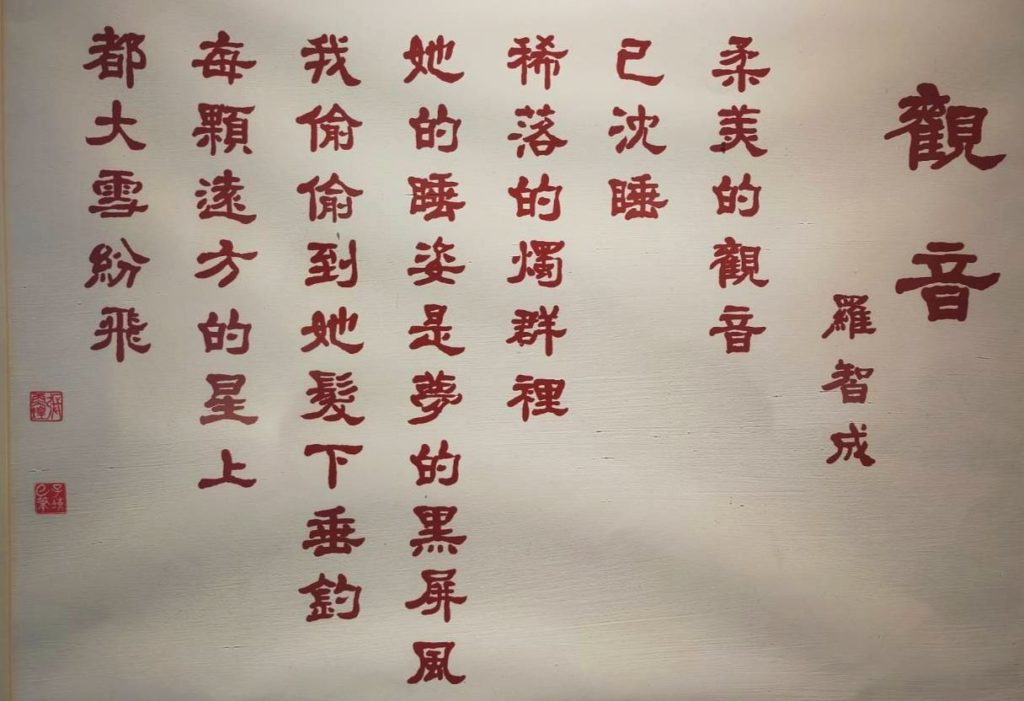 觀音
羅智成
柔美的觀音
已沈睡
稀落的燭群裡
她的睡姿是夢的黑屏風
我偷偷到她髮下垂釣
每顆遠方的星上
都大雪紛飛